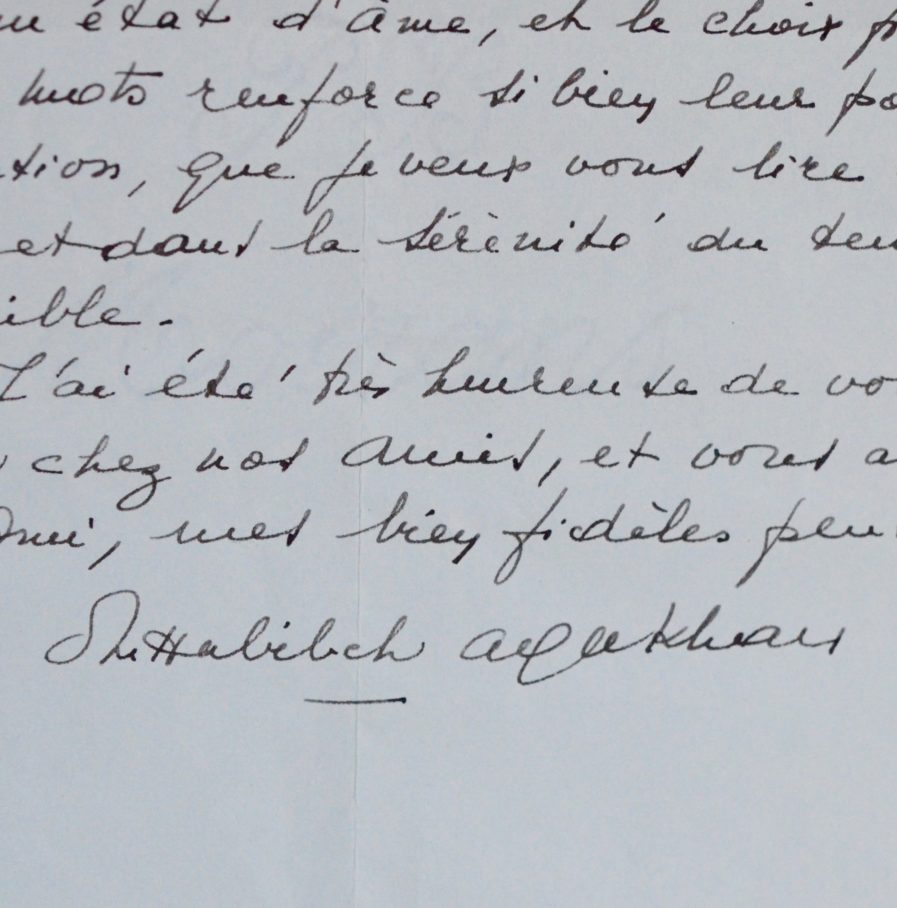 un état d'âme, et le choix p
mots renforce si bien leur po
tion, que je veux vous lire
et dans la sérénité du tem
ible.
J'ai été très heureuse de vo
chez nos amis, et vous a
Ami, mes bien fidèles pen
Om Habibeh Aga Khan